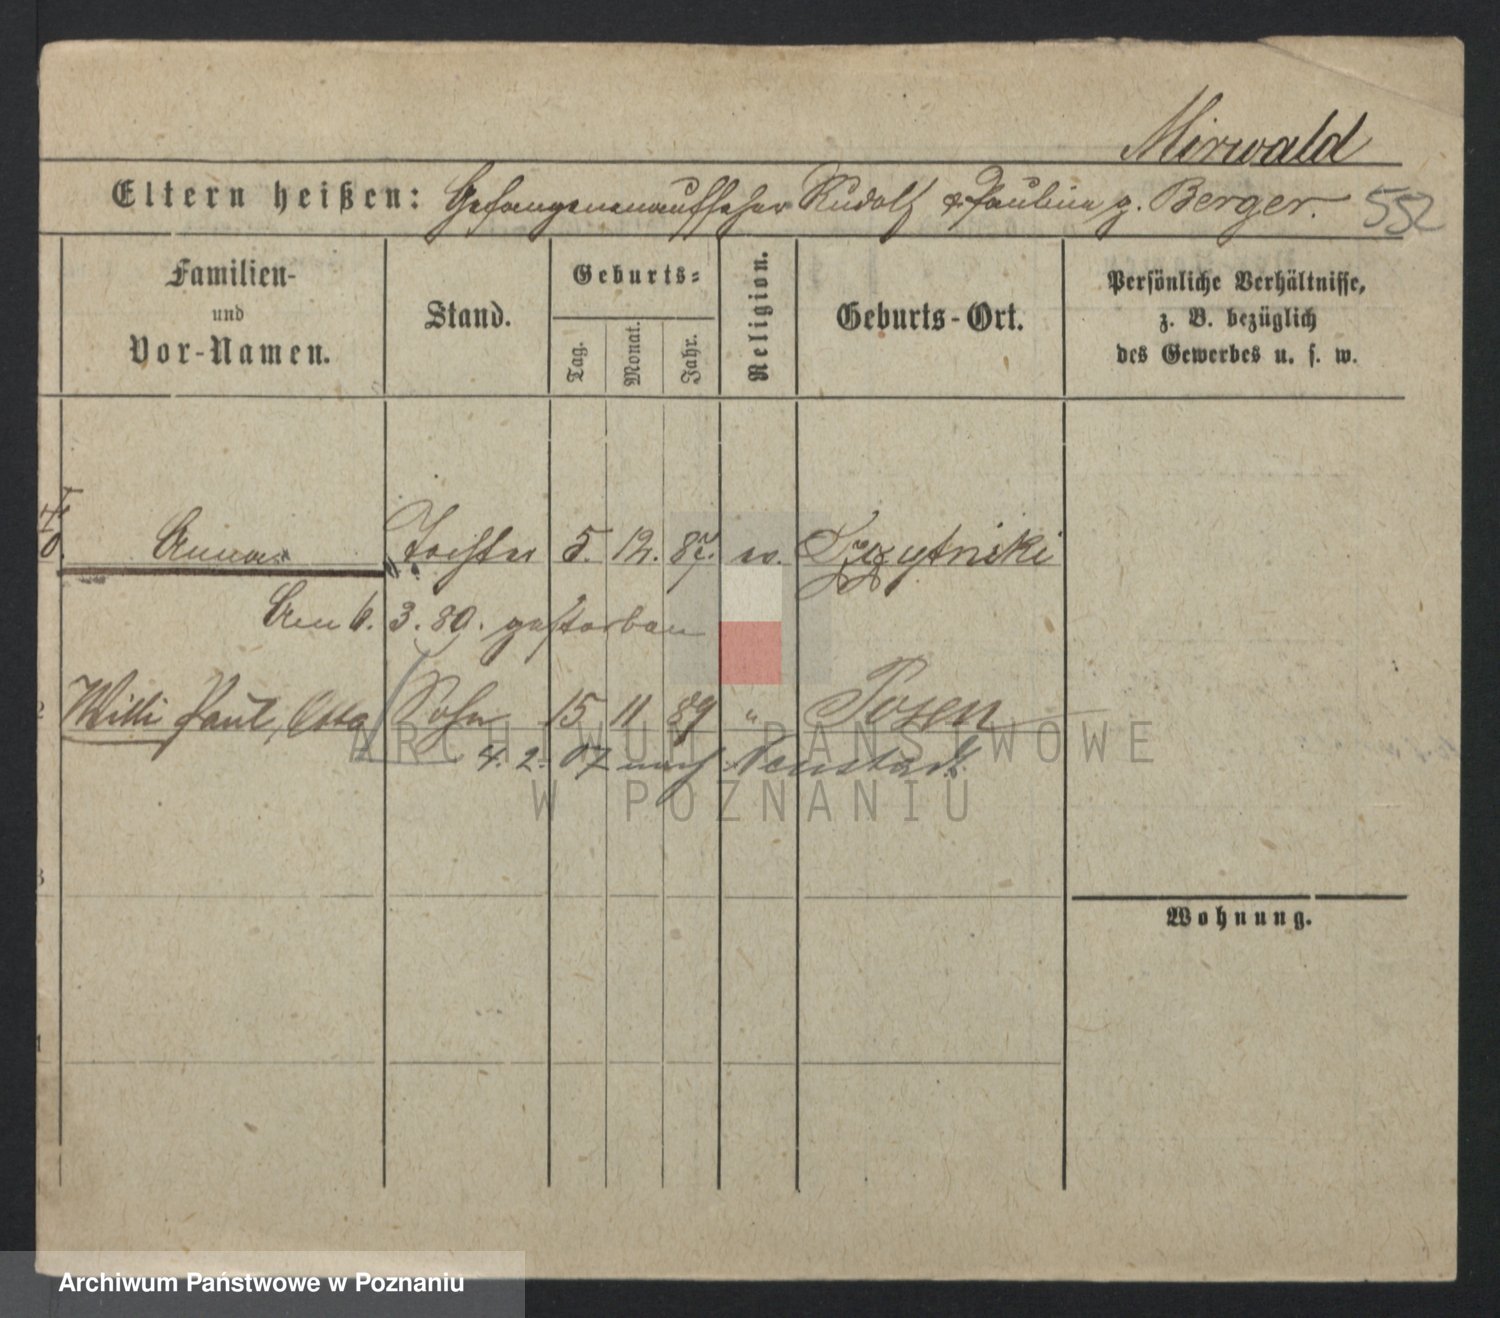 Mirwald
Eltern heißen: Gefangenenaufseher Rudolf & Pauline g. Berger. 552
Familien-
und
Vor-Namen.
Stand.
Geburts-
Tag.
Monat.
Jahr.
Religion.
Geburts-Ort.
Persönliche Verhältnisse,
z. B. bezüglich
des Gewerbes u. s. w.
Anna Tochter 5. 12. 87. ev.
Am 6. 3. 89. gestorben
Willi Paul, Otto Sohn 15 11 89 " Posen
4. 2. 07 nach Neustadt
ARCHIWUM PAŃSTWOWE
W POZNANIU
3
Wohnung.
Archiwum Państwowe w Poznaniu